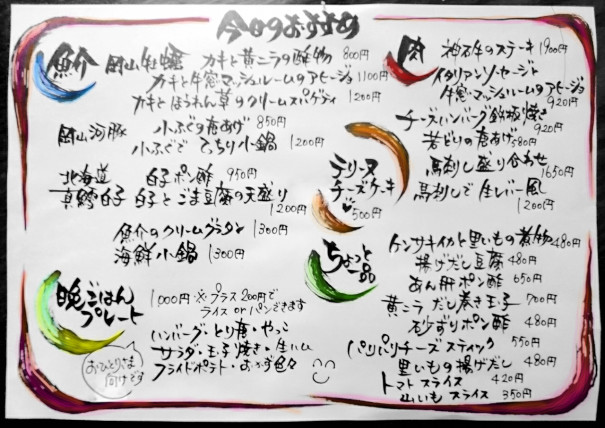 今日のおすすめ
魚介
岡山牡蠣 カキと黄ニラの酢物 800円
カキと牛窓マッシュルームのアヒージョ 1100円
カキとほうれん草のクリームスパゲティ 1200円
岡山河豚 小ふぐの唐あげ 850円
小ふぐで てっちり小鍋 1200円
北海道 白子ポン酢 950円
真鱈白子 白子とごま豆腐の天盛り
1200円
魚介のクリームグラタン 1300円
海鮮小鍋 1300円
晩ごはん
プレート
1000円 ※プラス200円で
ライス or パンできます
ハンバーグ・とり唐・やっこ
サラダ・玉子焼き・生ハム
フライドポテト・おかず色々
おひとりさま
向けです
肉
神石牛のステーキ 1900円
イタリアンソーセージと
牛窓マッシュルームのアヒージョ
920円
チーズハンバーグ鉄板焼き
920円
若どりの唐あげ 580円
馬刺し盛り合わせ
1650円
馬刺しで生レバー風
1200円
テリーヌ
チーズケーキ
500円
ちょっと
一品
ケンサキイカと里いもの煮物 480円
揚げだし豆腐 480円
あん肝ポン酢 650円
黄ニラ だし巻き玉子 700円
砂ずりポン酢 480円
パリパリチーズスティック 550円
里いもの揚げだし 480円
トマトスライス 420円
山いもスライス 350円